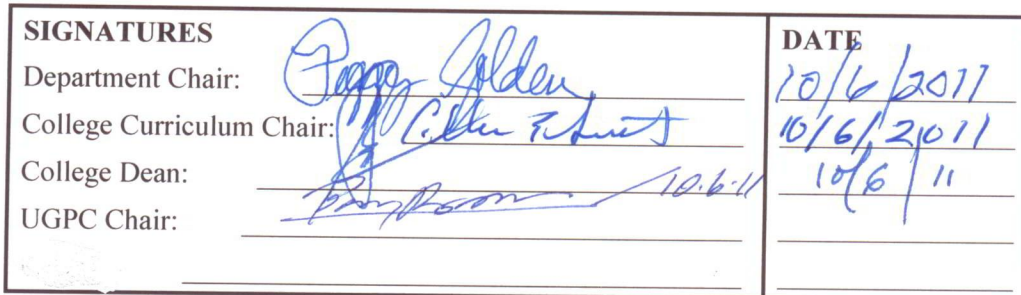 SIGNATURES DATE
Department Chair: Peggy Golden 10/6/2011
College Curriculum Chair: 10/6/2011
College Dean: 10.6.11 10/6/11
UGPC Chair: